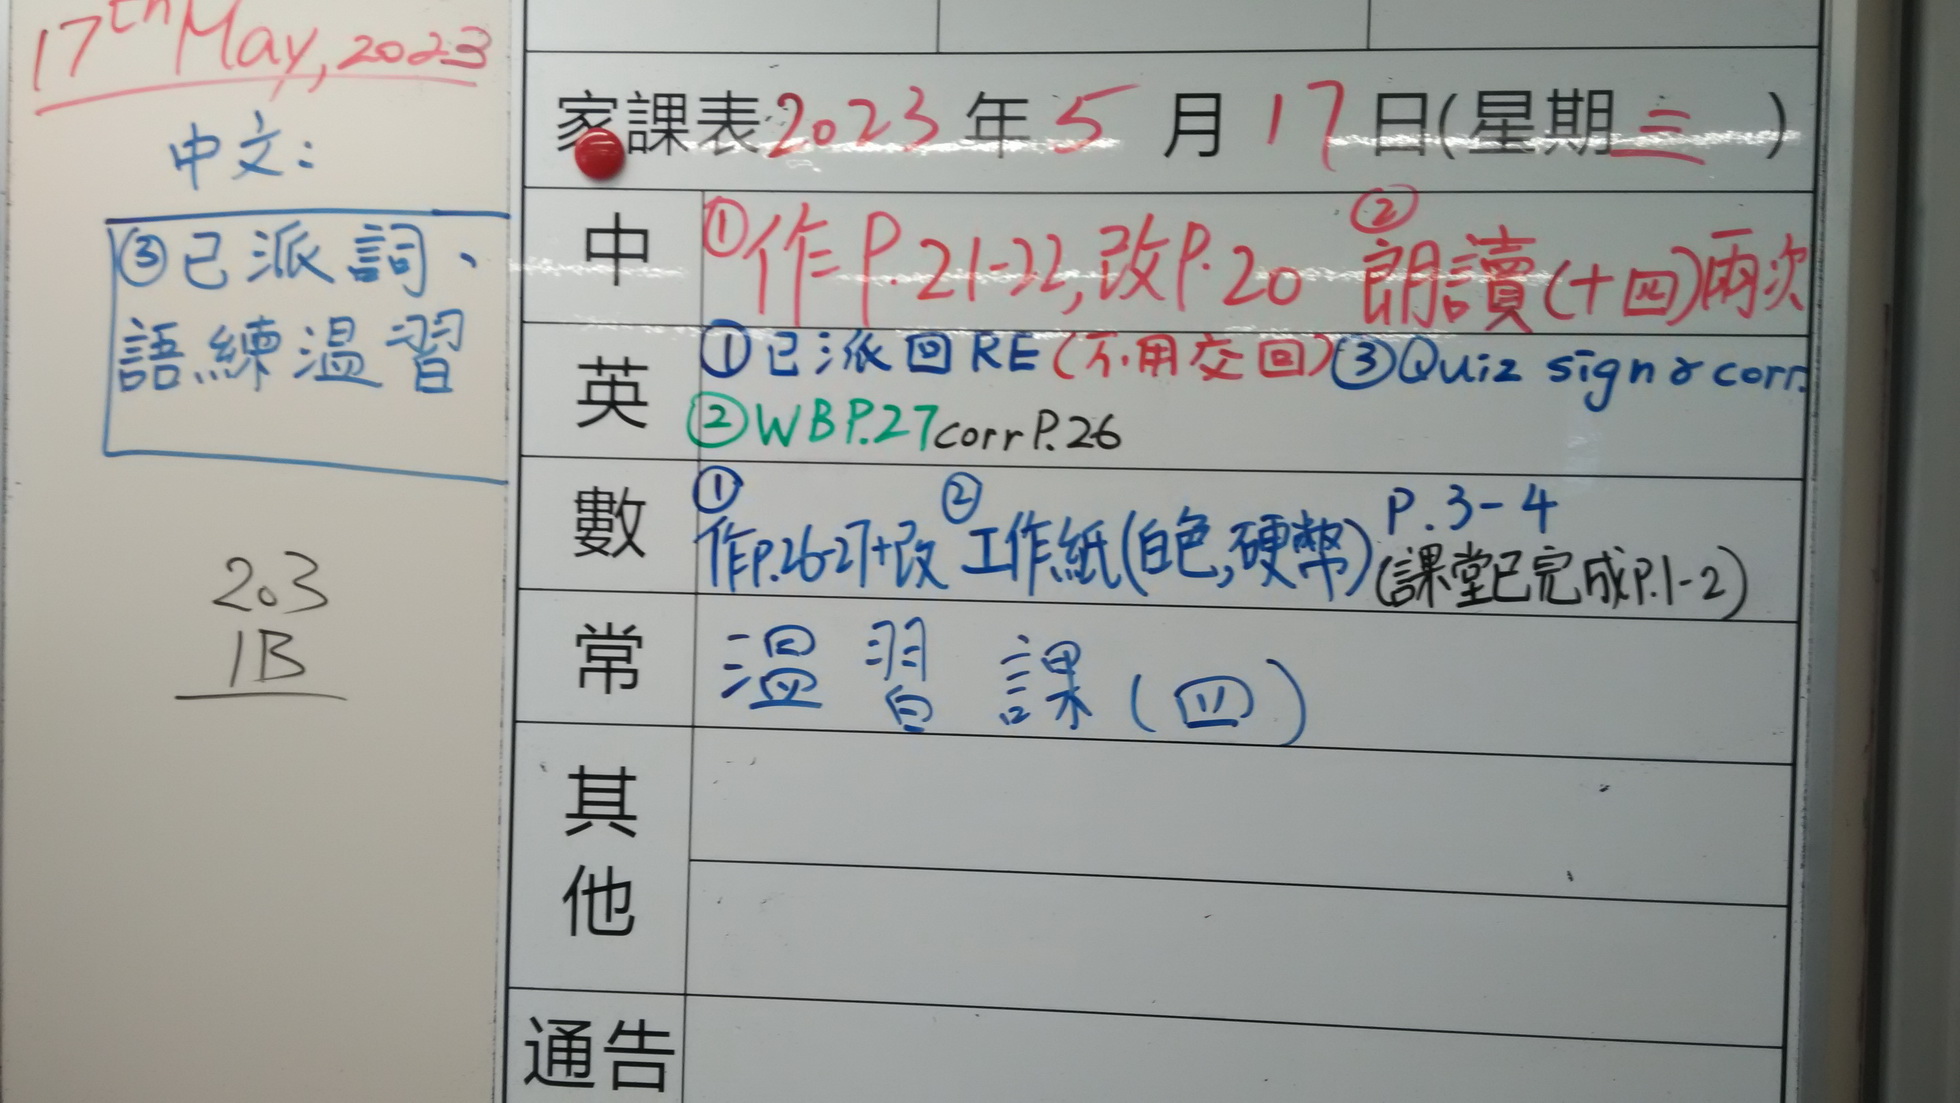 17th May, 2023
中文:
③已派詞、
語練溫習
203
1B
家課表2023年5月17日(星期三)
中 ①作P.21-22,改P.20 ②朗讀(十四)兩次
英 ①已派回RE(不用交回)③Quiz sign & corr.
②WBP.27corrP.26
數 ①作p.26-27+改 ②工作紙(白色,硬幣) P.3-4
(課堂已完成P.1-2)
常 溫習課(四)
其
他
通告